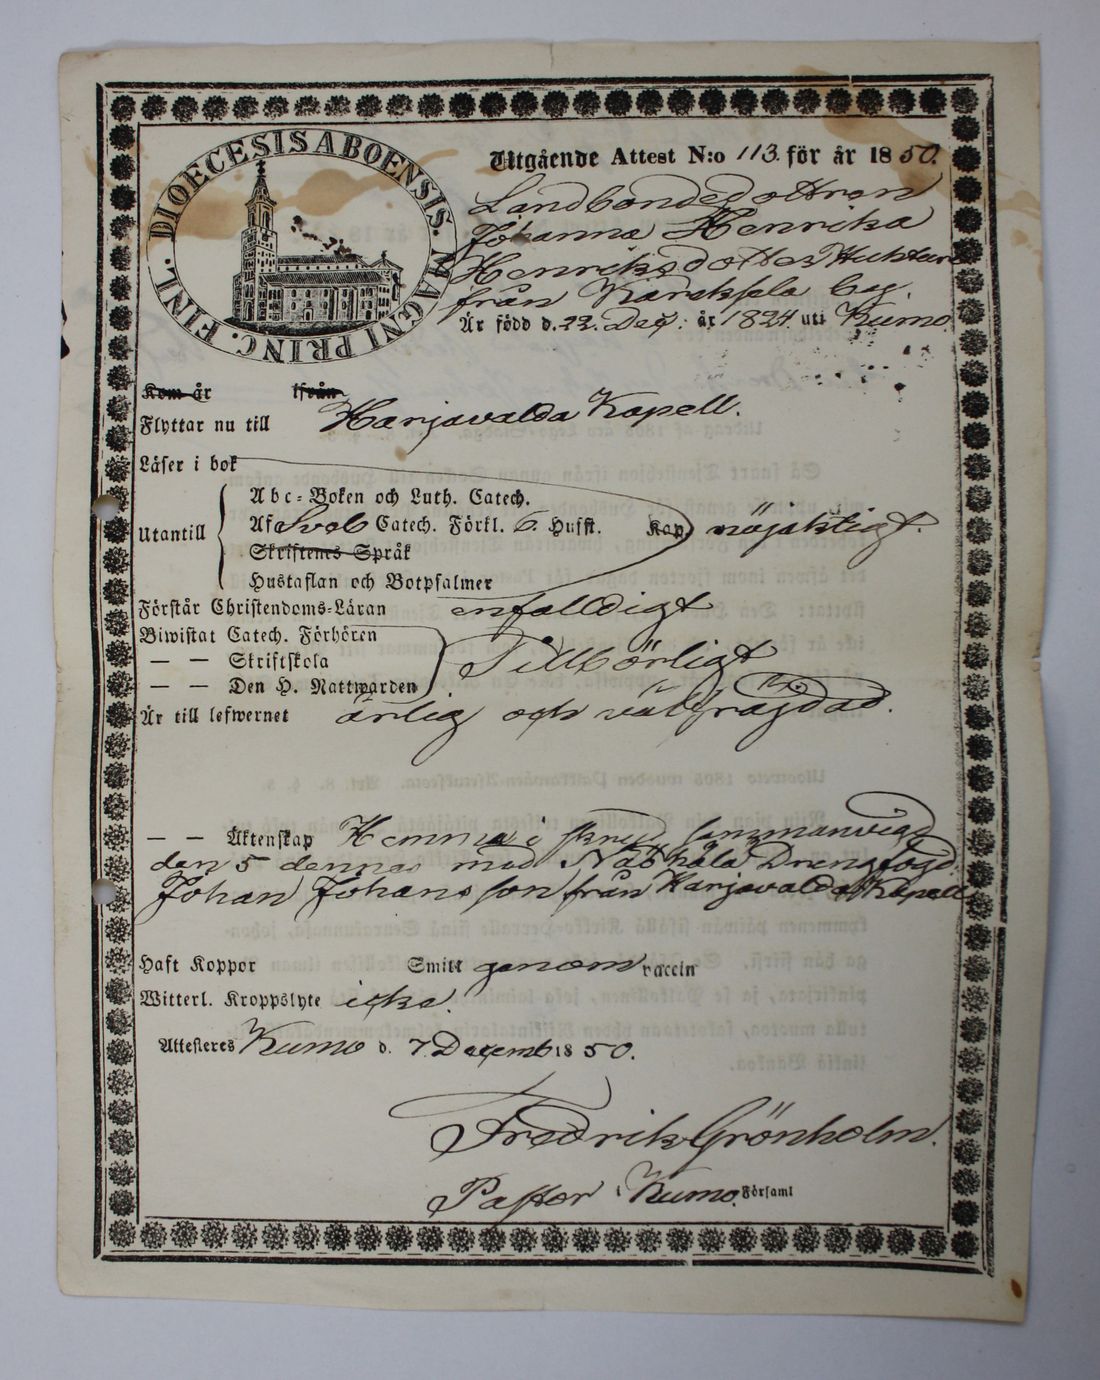 DIOECESIS ABOENSIS. MAGNI PRINC. FINL.
Utgående Attest N:o 113. för år 1850.
Landbondedottren
Johanna Henrika
Henriksdotter
från Kareksela by.
Är född d. 22. Dec: år 1824 uti Kumo
Kom år ifrån
Flyttar nu till Harjavalda Kapell.
Läser i bok
Utantill
Abc-Boken och Luth. Catech.
Af Sveb Catech. Förkl. 6. Hufst. Kap nöjaktigt.
Skriftenes Språk
Hustaflan och Botpsalmer
Förstår Christendoms-Läran enfalldigt
Biwistat Catech. Förhören
— — Skriftskola Tillbörligt
— — Den H. Nattwarden
Är till lefwernet ärlig och välfrägdad.
— — Äktenskap sammanvigd
den 5 dennes med Drengfogd.
Johan Johansson från Harjavalda Kapell
Haft Koppor Smitt genom vaccin
Witterl. Kroppslyte icke.
Attesteres Kumo d. 7. Decemb 1850.
Fredrik Grönholm.
Pastor i Kumo. Församl